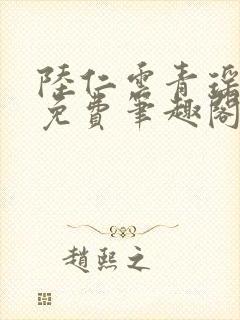 陸仁雲青瑶
免費筆趣閣
趙熙之